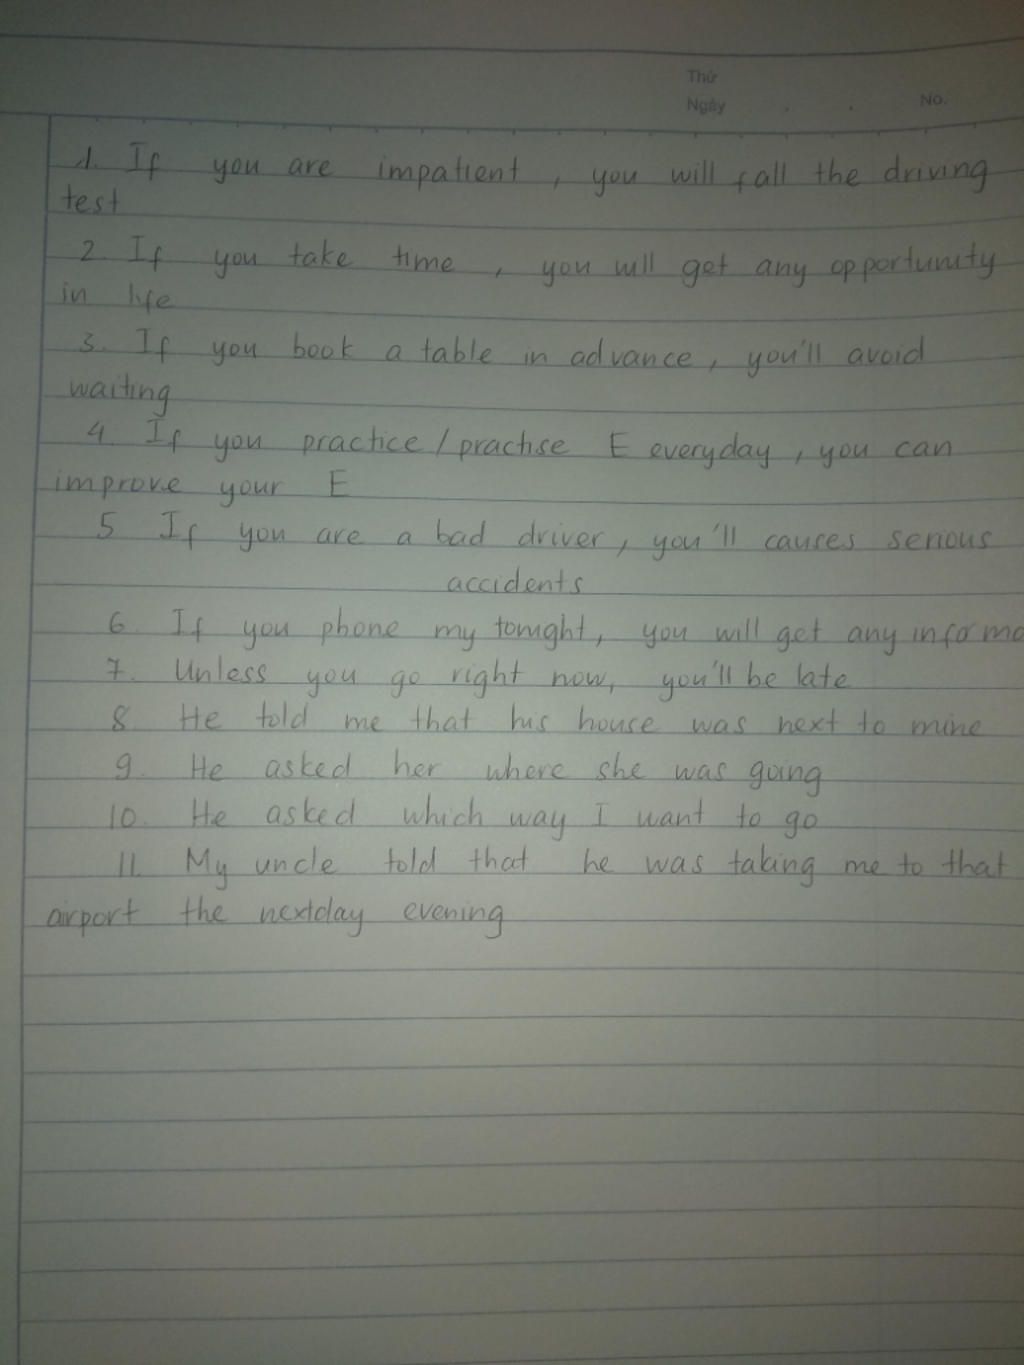 Thứ
Ngày . . No.
1. If you are impatient, you will fall the driving
test
2. If you take time, you will get any opportunity
in life
3. If you book a table in advance, you'll avoid
waiting
4. If you practice / practise E everyday, you can
improve your E
5 If you are a bad driver, you'll causes serious
accidents
6. If you phone my tonight, you will get any informa
7. Unless you go right now, you'll be late
8. He told me that his house was next to mine
9. He asked her where she was going
10. He asked which way I want to go
11. My uncle told that he was taking me to that
airport the nextday evening